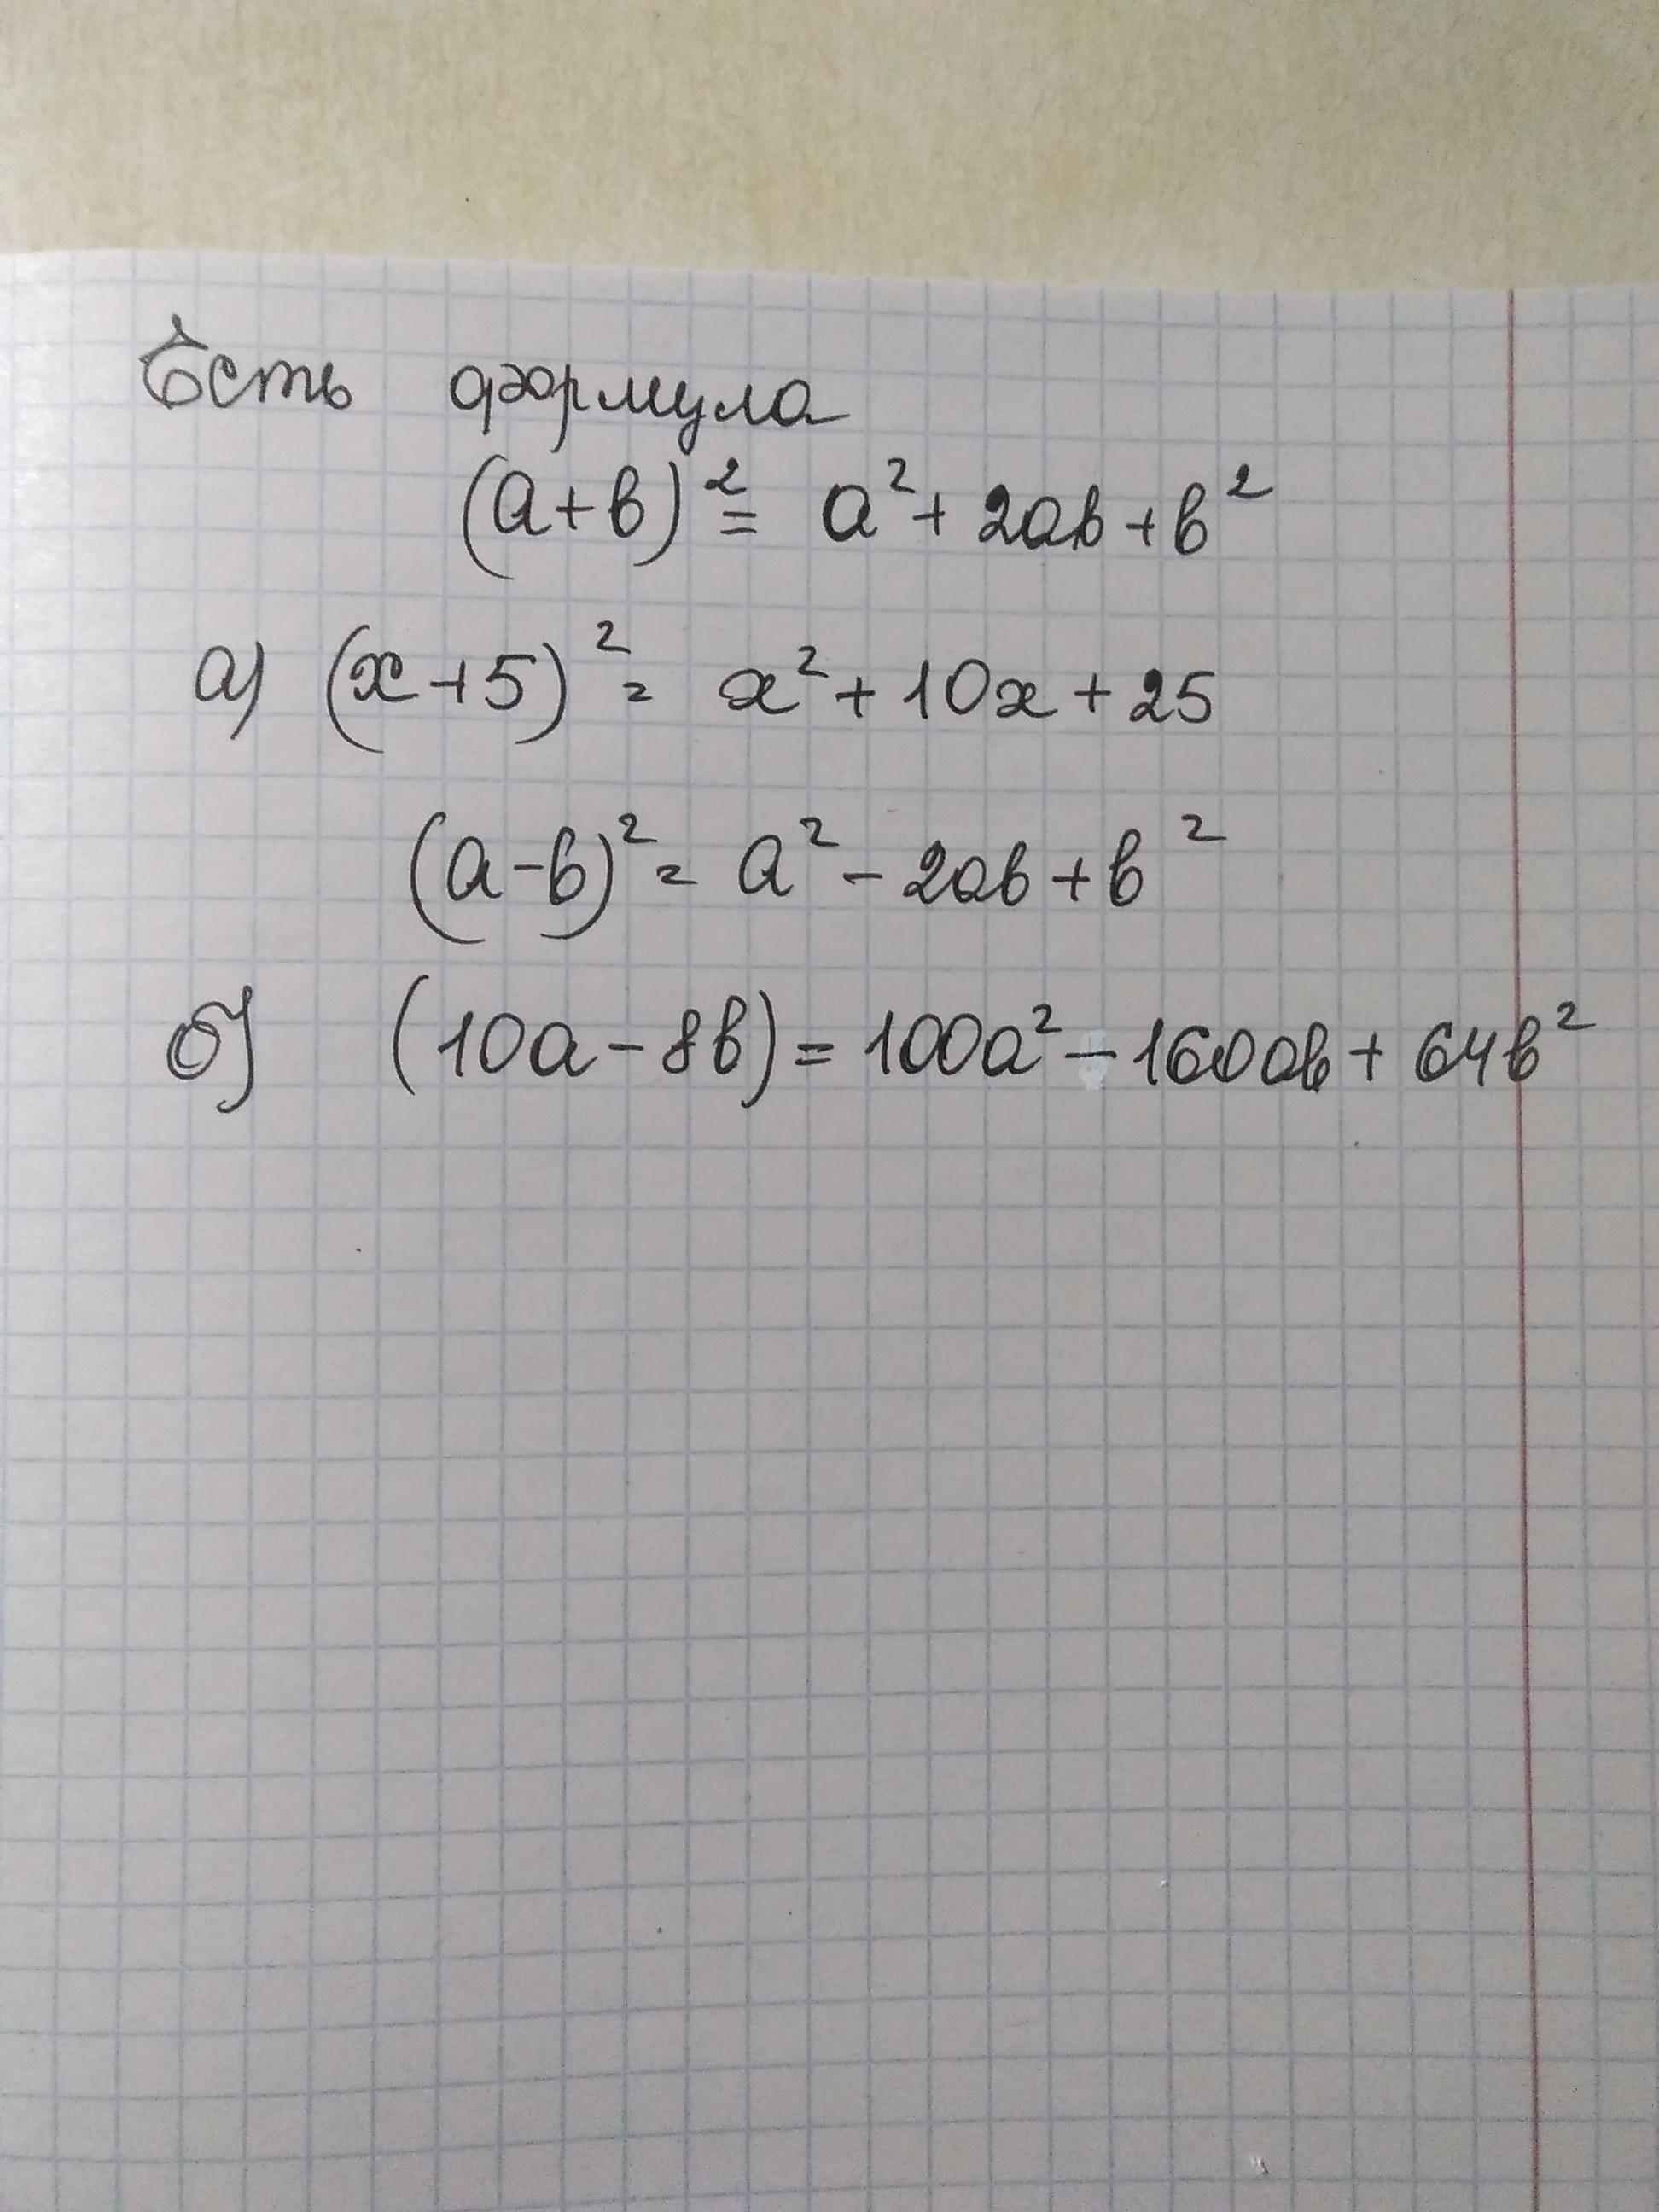 Есть формула
(a+b)² = a² + 2ab + b²
а) (x+5)² = x² + 10x + 25
(a-b)² = a² - 2ab + b²
б) (10a - 8b) = 100a² - 160ab + 64b²